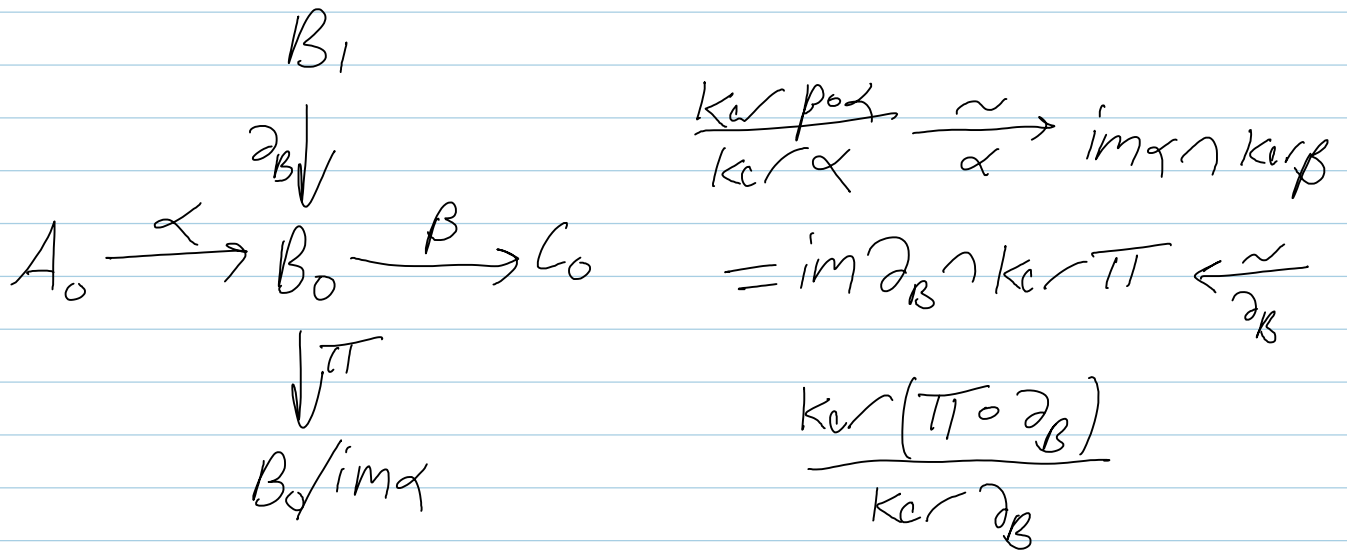 B₁
∂_B
A₀ —α→ B₀ —β→ C₀
π
B₀/im α
ker β∘α / ker α —∼→ im α ∩ ker β
α
= im ∂_B ∩ ker π ←∼—
∂_B
ker(π ∘ ∂_B)
ker ∂_B